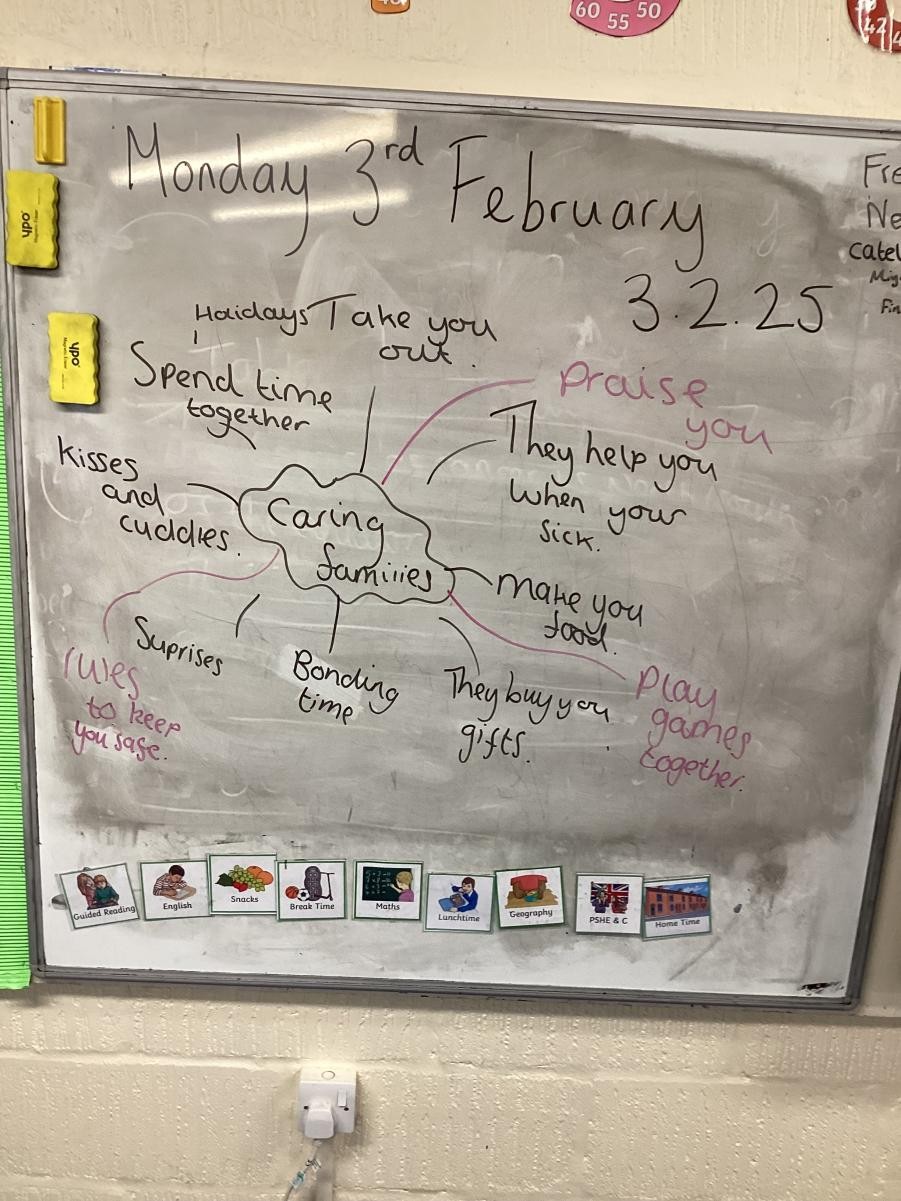 60 55 50
42
Monday 3rd February
3.2.25
Fre
Ne
catel
Mig
Fin
ypo
ypo
Haidays
Take you
out.
Spend time
together
Praise
you
They help you
when your
sick.
Kisses
and
cuddles.
Caring
families
Make you
food.
Suprises
rules
to keep
you safe.
Bonding
time
They buy you
gifts.
Play
games
together.
Guided Reading
English
Snacks
Break Time
Maths
Lunchtime
Geography
PSHE & C
Home Time